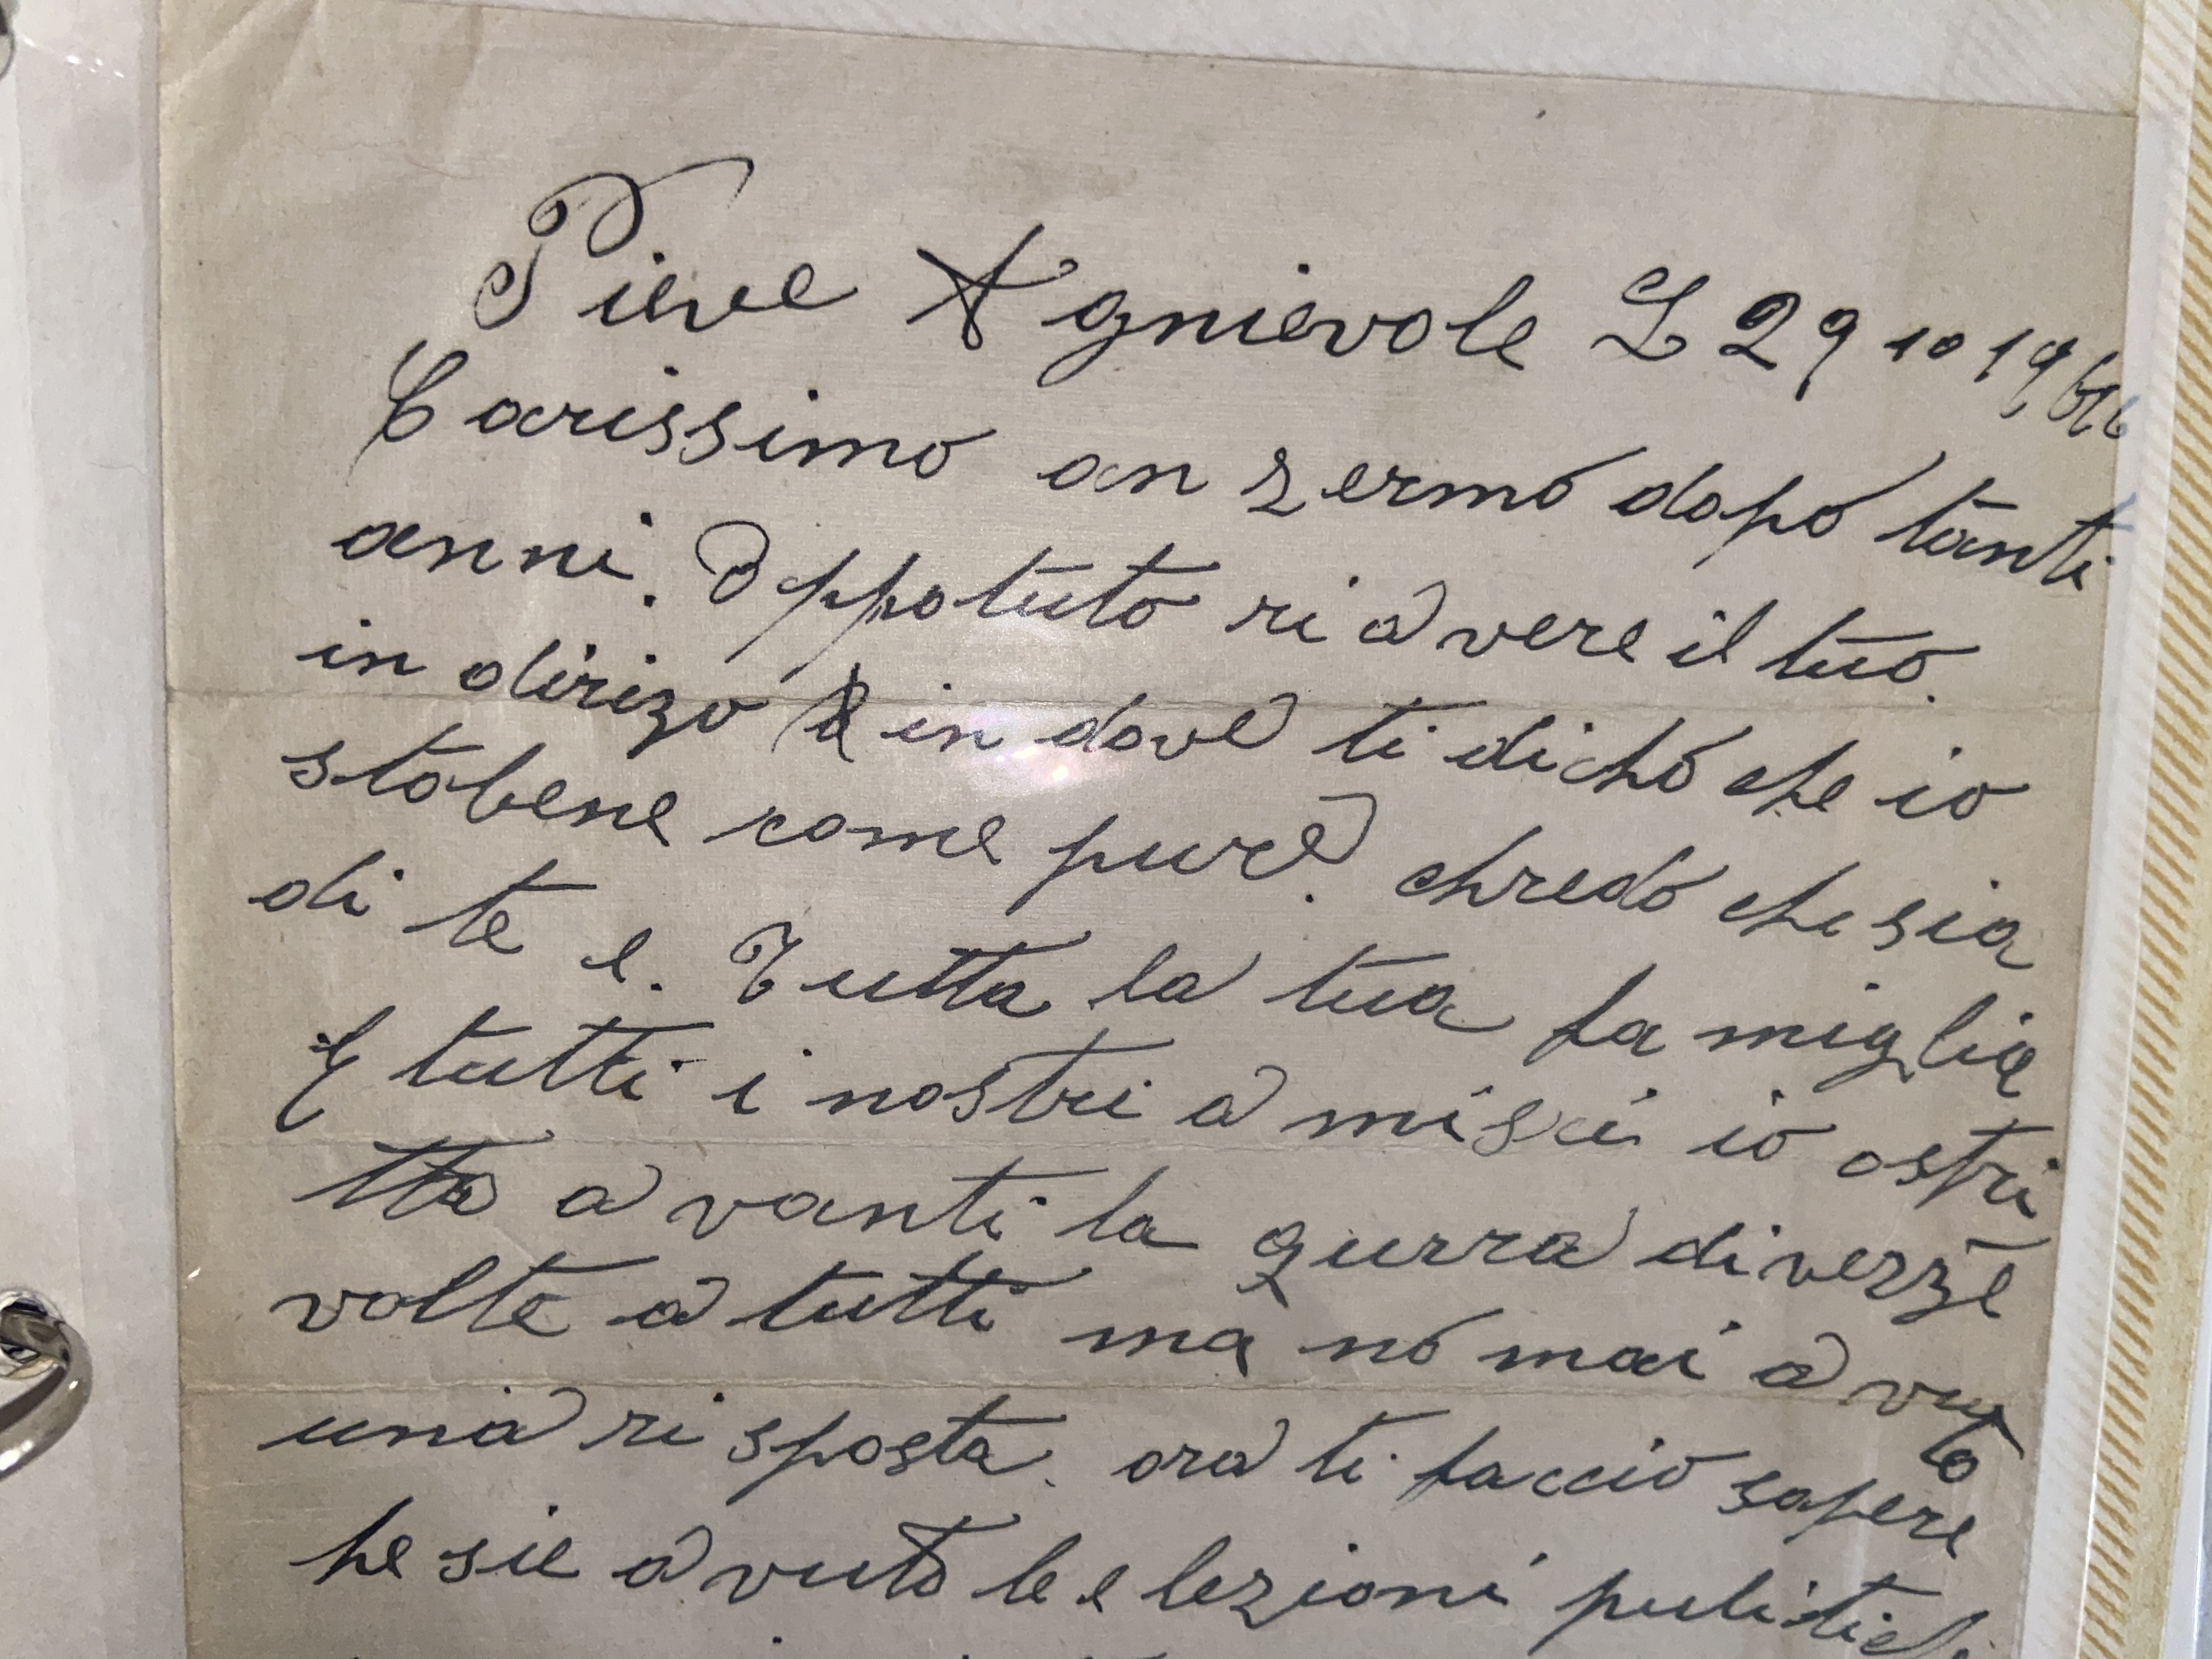 Pieve A gnievole L 29 10 1946
Carissimo an zermo dopo tanti
anni. O ppotuto ri a vere il tuo.
in dirizo in dove ti dicho che io
stobene come pure. chredo che sia
di te e. Tutta la tua fa miglia
E tutti i nostri a misci io ostri
tto a vanti la gurra di verze
volte a tutti ma no mai a vuto
una ri sposta. ora ti faccio sapere
he sie a vuto le e lezioni puliticl